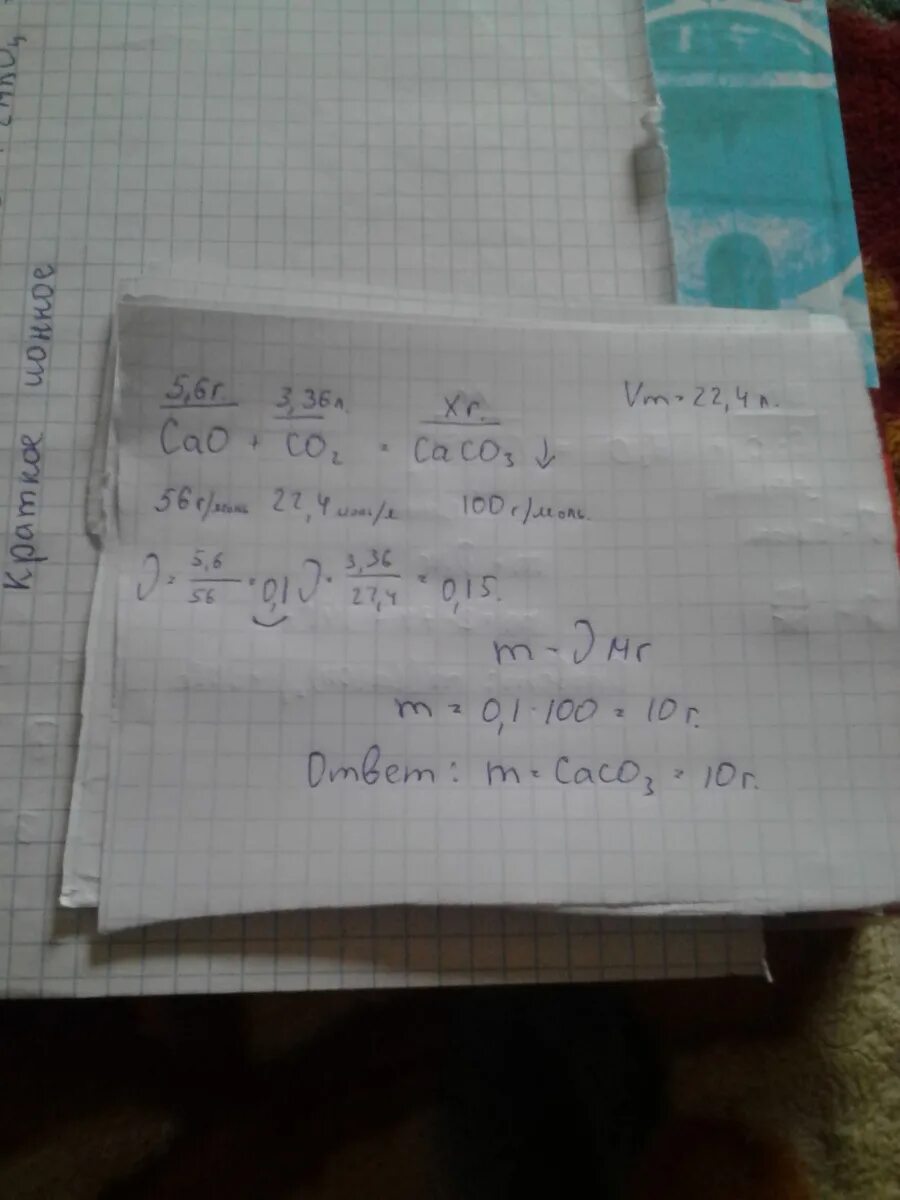 Краткое ионное
5,6г. 3,36л. Xг. Vm = 22,4 л.
CaO + CO₂ = CaCO₃ ↓
56 г/моль 22,4 моль/л 100 г/моль.
ν = 5,6/56 = 0,1 ν = 3,36/22,4 = 0,15.
m - ν Mr
m = 0,1 · 100 = 10 г.
Ответ: m = CaCO₃ = 10г.